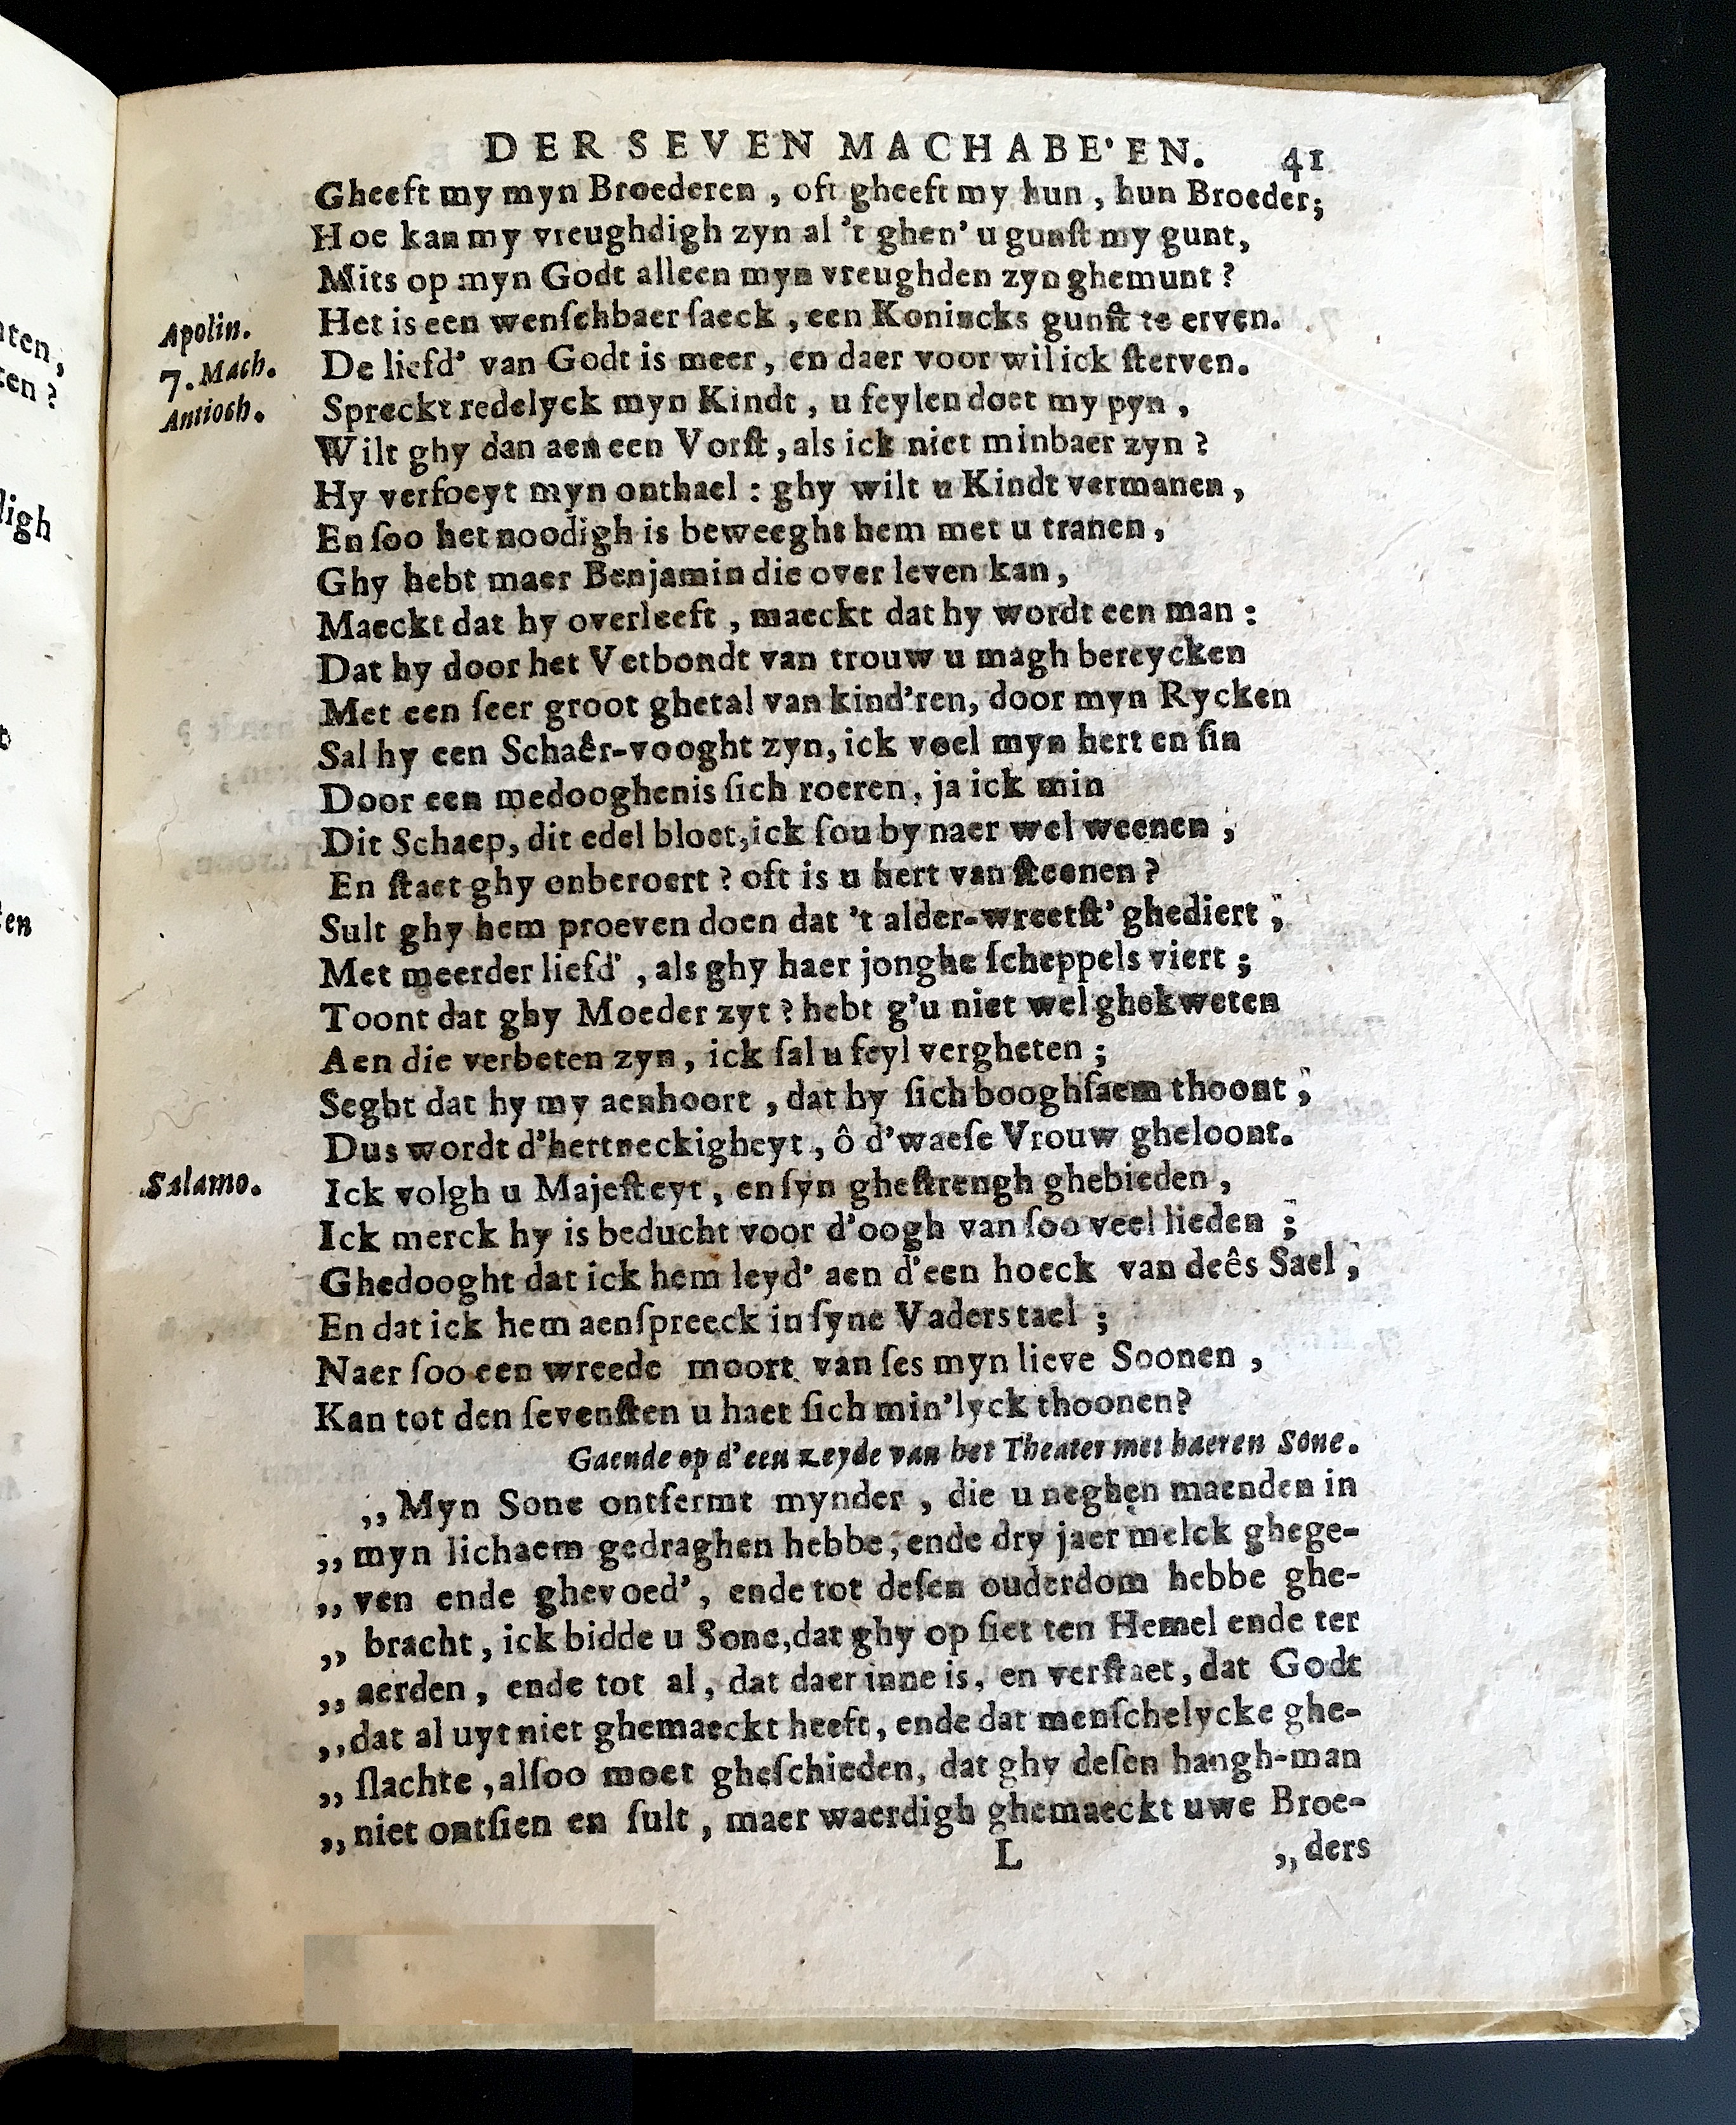 DER SEVEN MACHABE'EN. 41
Gheeft my myn Broederen, oft gheeft my hun, hun Broeder;
Hoe kan my vreughdigh zyn al 't ghen' u gunſt my gunt,
Mits op myn Godt alleen myn vreughden zyn ghemunt?
Apolin. Het is een wenſchbaer ſaeck, een Konincks gunſt te erven.
7. Mach. De liefd' van Godt is meer, en daer voor wil ick ſterven.
Antioch. Spreckt redelyck myn Kindt, u feylen doet my pyn,
Wilt ghy dan aen een Vorſt, als ick niet minbaer zyn?
Hy verfoeyt myn onthael: ghy wilt u Kindt vermanen,
En ſoo het noodigh is beweeght hem met u tranen,
Ghy hebt maer Benjamin die over leven kan,
Maeckt dat hy overleeft, maeckt dat hy wordt een man:
Dat hy door het Vetbondt van trouw u magh bereycken
Met een ſeer groot ghetal van kind'ren, door myn Rycken
Sal hy een Schaêr-vooght zyn, ick voel myn hert en ſin
Door een medooghenis ſich roeren, ja ick min
Dit Schaep, dit edel bloet, ick ſou by naer wel weenen;
En ſtaet ghy onberoert? oft is u hert van ſteenen?
Sult ghy hem proeven doen dat 't alder-wreetſt' ghediert;
Met meerder liefd', als ghy haer jonghe ſcheppels viert;
Toont dat ghy Moeder zyt? hebt g'u niet wel ghekweten
Aen die verbeten zyn, ick ſal u feyl vergheten;
Seght dat hy my aenhoort, dat hy ſich booghſaem thoont;
Dus wordt d'hertneckigheyt, ô d'waeſe Vrouw gheloont.
Salamo. Ick volgh u Majeſteyt, en ſyn gheſtrengh ghebieden,
Ick merck hy is beducht voor d'oogh van ſoo veel lieden;
Ghedooght dat ick hem leyd' aen d'een hoeck van deês Sael;
En dat ick hem aenſpreeck in ſyne Vaders tael;
Naer ſoo een wreede moort van ſes myn lieve Soonen,
Kan tot den ſevenſten u haet ſich min'lyck thoonen?
Gaende op d'een zeyde van het Theater met haeren Sone.
,, Myn Sone ontfermt mynder, die u neghen maenden in
,, myn lichaem gedraghen hebbe, ende dry jaer melck ghege-
,, ven ende ghevoed', ende tot deſen ouderdom hebbe ghe-
,, bracht, ick bidde u Sone, dat ghy op ſiet ten Hemel ende ter
,, aerden, ende tot al, dat daer inne is, en verſtaet, dat Godt
,, dat al uyt niet ghemaeckt heeft, ende dat menſchelycke ghe-
,, ſlachte, alſoo moet gheſchieden, dat ghy deſen hangh-man
,, niet ontſien en ſult, maer waerdigh ghemaeckt uwe Broe-
L ,, ders
ten,
en?
ligh
en